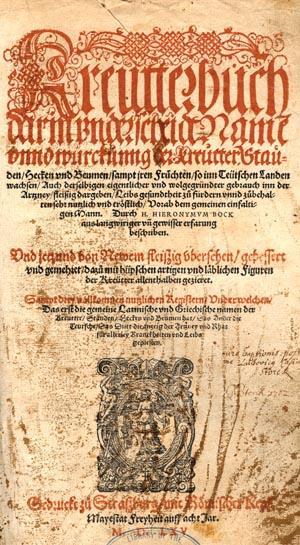 Kreutterbuch
darin underscheidt Name
unnd würckung der Kreutter Stau-
den/ Hecken unnd Beumen/ sampt jren Früchten/ so inn Teütschen Landen
wachsen/ Auch derselbigen eigentlicher und wolgegründter gebrauch inn der
Artzney fleißig dargeben/ Leibs gesundtheit zu fürdern unnd zübehal-
ten seer nutzlich und tröstlich/ Vorab dem gemeinen einfalti-
gen Mann. Durch H. HIERONYMUM BOCK
auß langwiriger uñ gewisser erfarung
beschriben.
Und jetzund von Newem fleißig übersehen/ gebessert
und gemehret/ dazu mit hüpschen artigen und lieblichen Figuren
der Kreütter allenthalben gezieret.
Sampt drey vollkommen nutzlichen Registern/ Under welchen/
Das erst die gemeine Latinische und Griechische namen der
Kreutter/ Stauden/ Hecken und Beumen hat/ Das Ander die
Teutsche/ Das Dritt die anzeig der Artzney und Rhat
für allerley Kranckheiten und Leibs
gepresten.
Gedruckt zu Straßburg/ mit Römischer Key.
Mayestat Freyheit auff acht Jar.
M. D. LXV.
LIBRARY OF THE